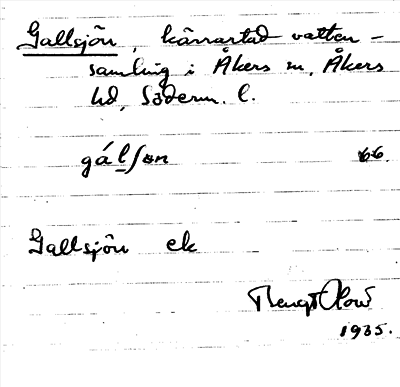 Gallsjön, kärrartad vatten-
samling i Åkers sn, Åkers
hd, Söderm. l.
gálʃøn 66.
Gallsjön ek
Bengt
1935.